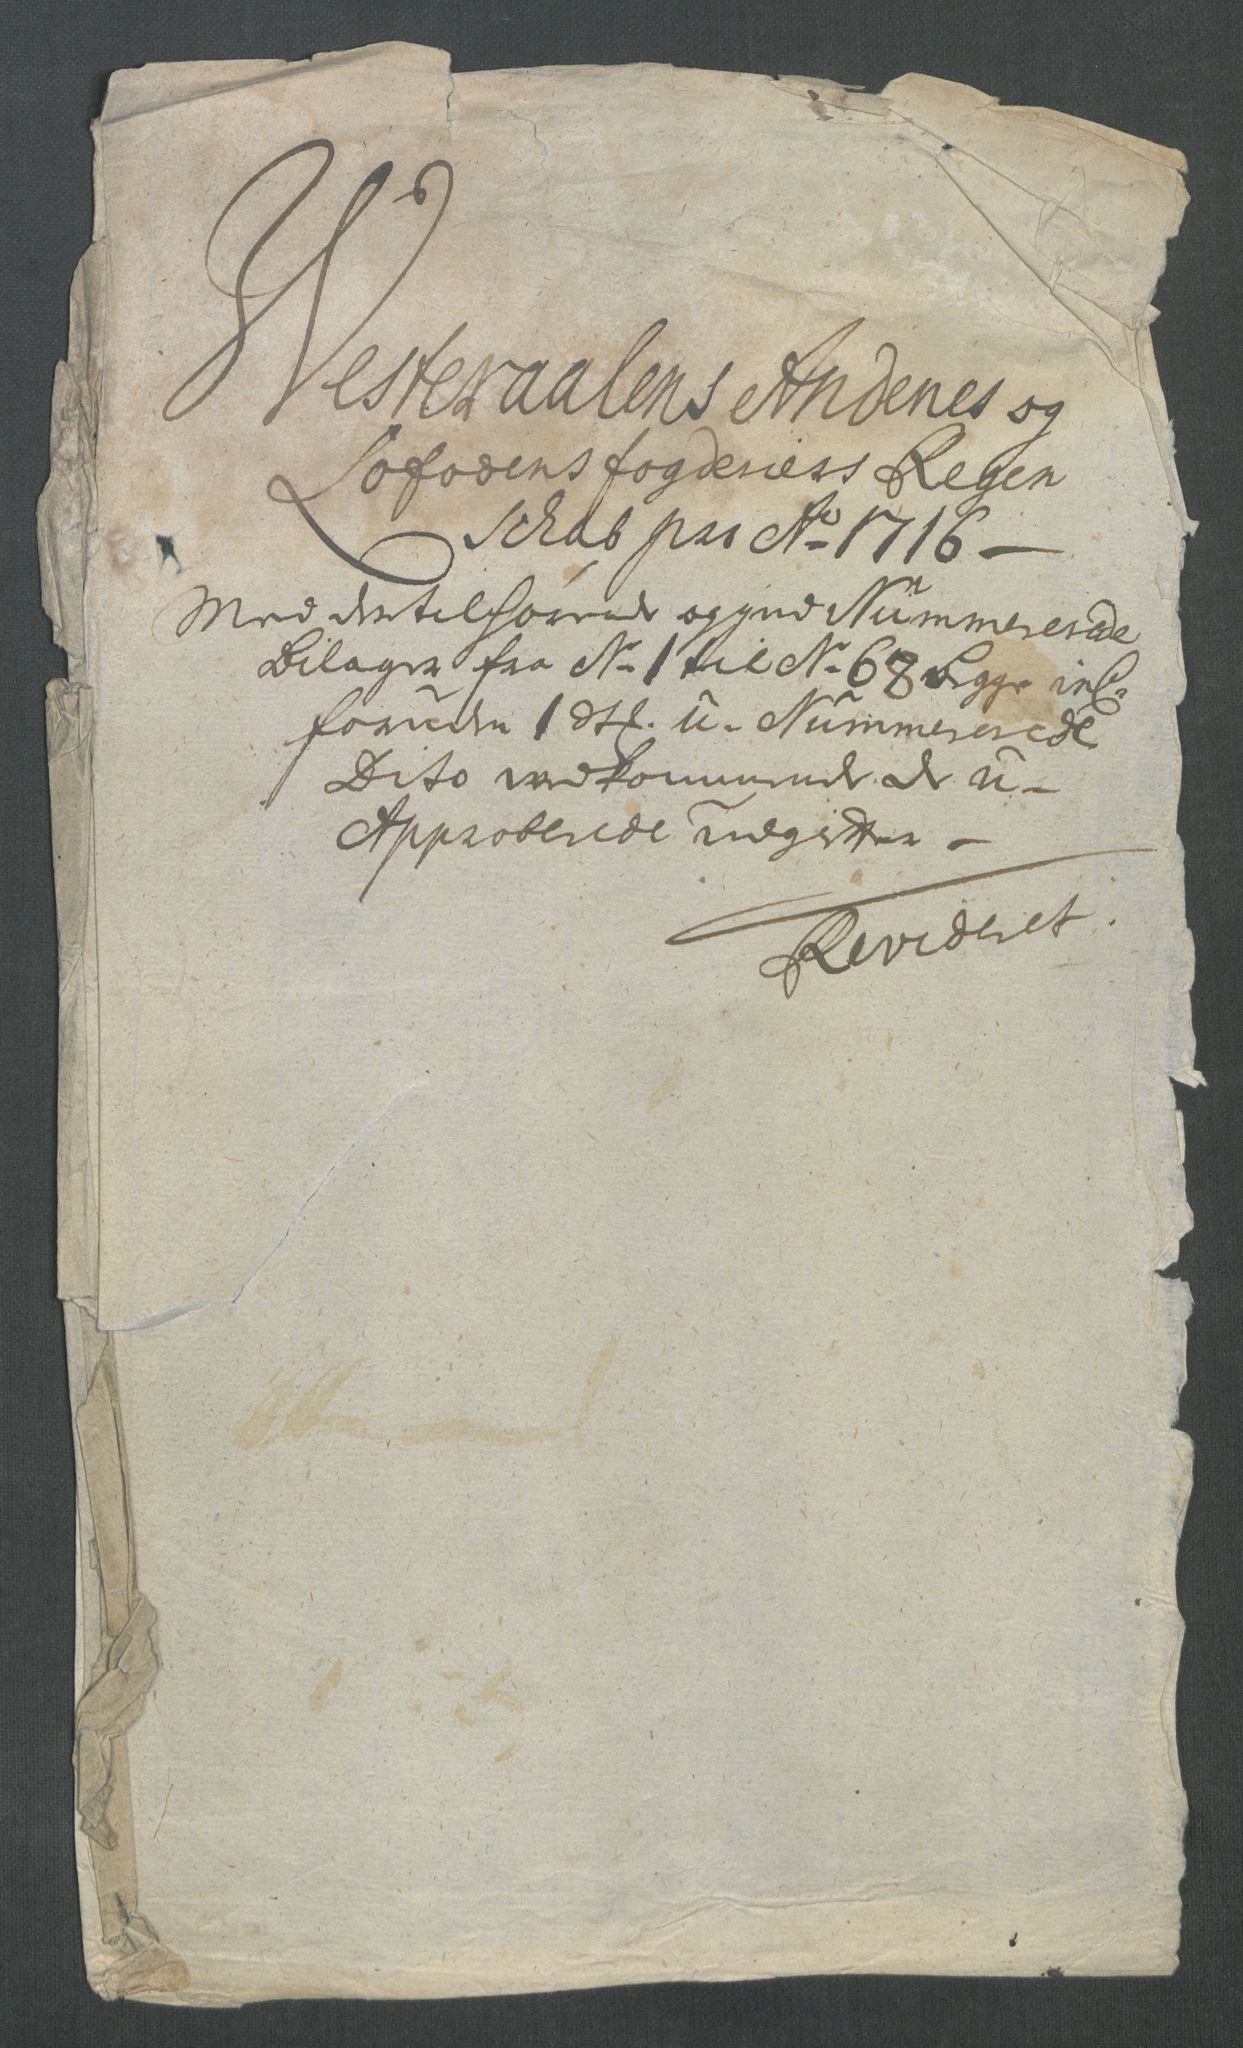 Westeraalens Andenes og
Lofodens fogderiers Regen
schab pro Ao 1716 —
Med dertilhörende og
Nummererede
Bilager fra No 1 til No 68 begge incl.
foruden 1 stk. u-Nummererede
Dito vedkommende de u-
Approberede udgifter —
Revideret.